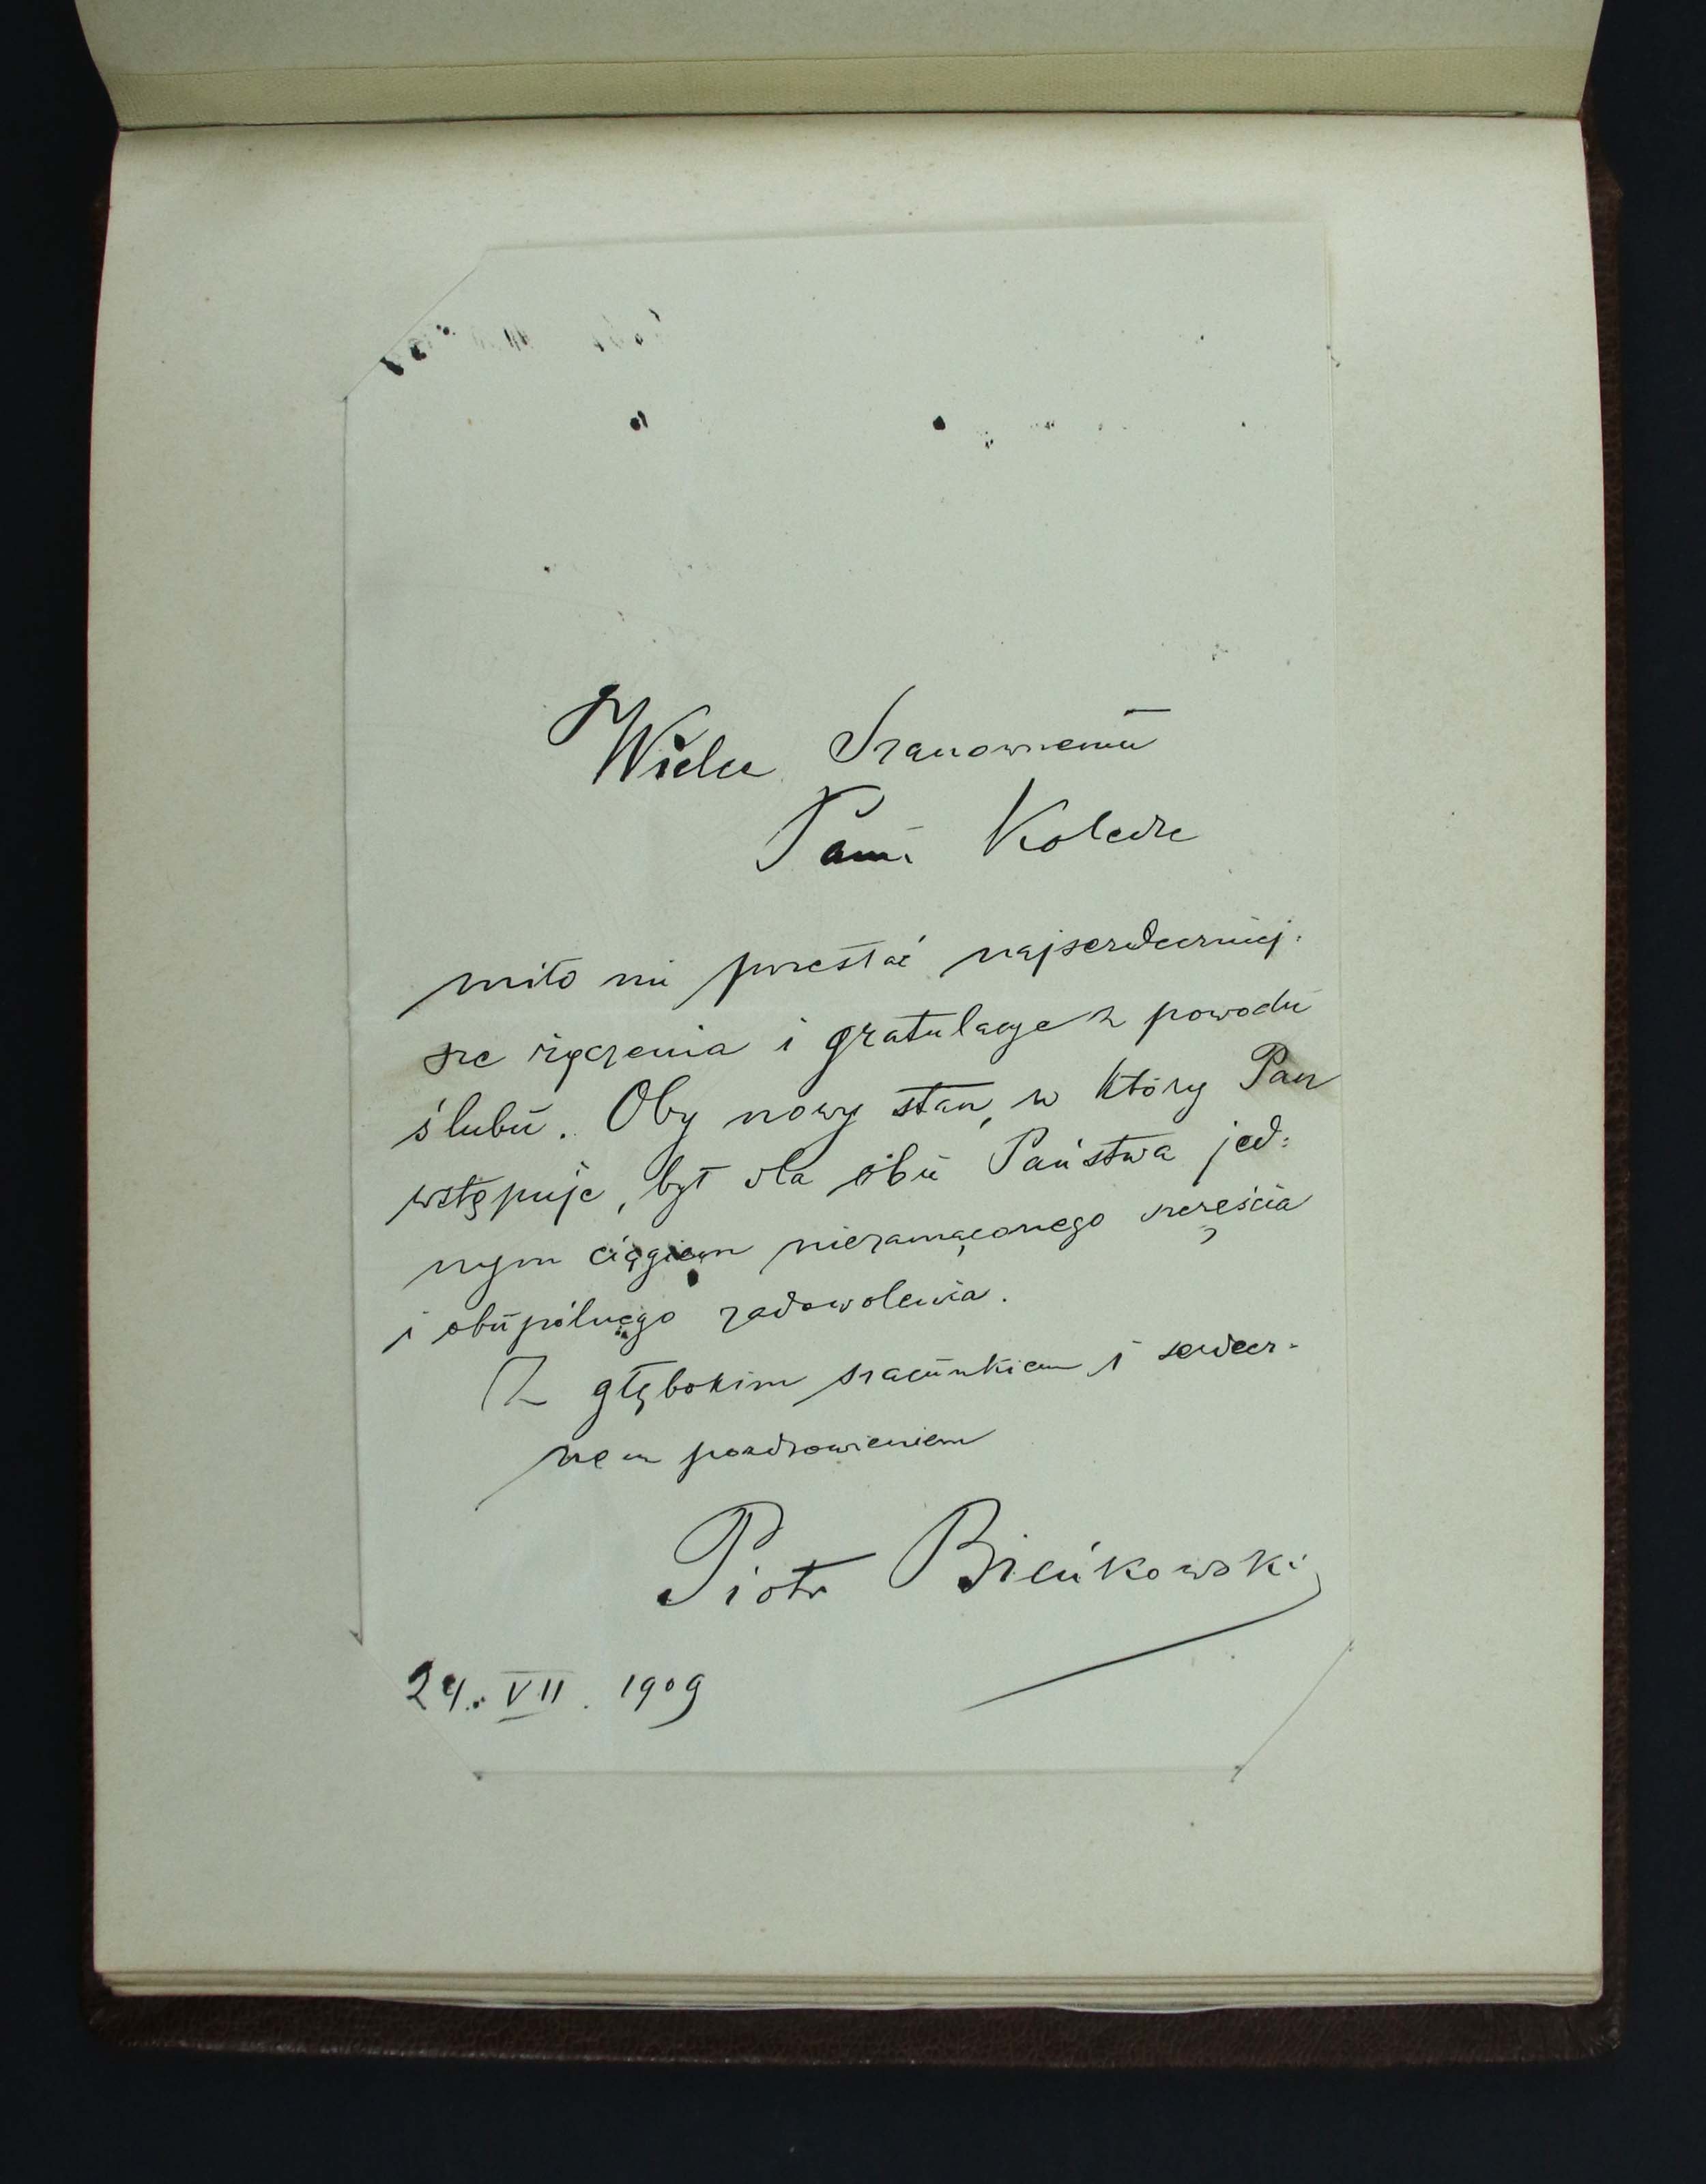 Wielce Szanownemu
Panu Koledze
miło mi przesłać najserdeczniej-
sze życzenia i gratulacye z powodu
ślubu. Oby nowy stan, w który Pan
wstępuje, był dla obu Państwa jed-
nym ciągiem niezamąconego szczęścia
i obupólnego zadowolenia.
Z głębokim szacunkiem i serdecz-
nem pozdrowieniem
Piotr Bieńkowski
24. VII. 1909